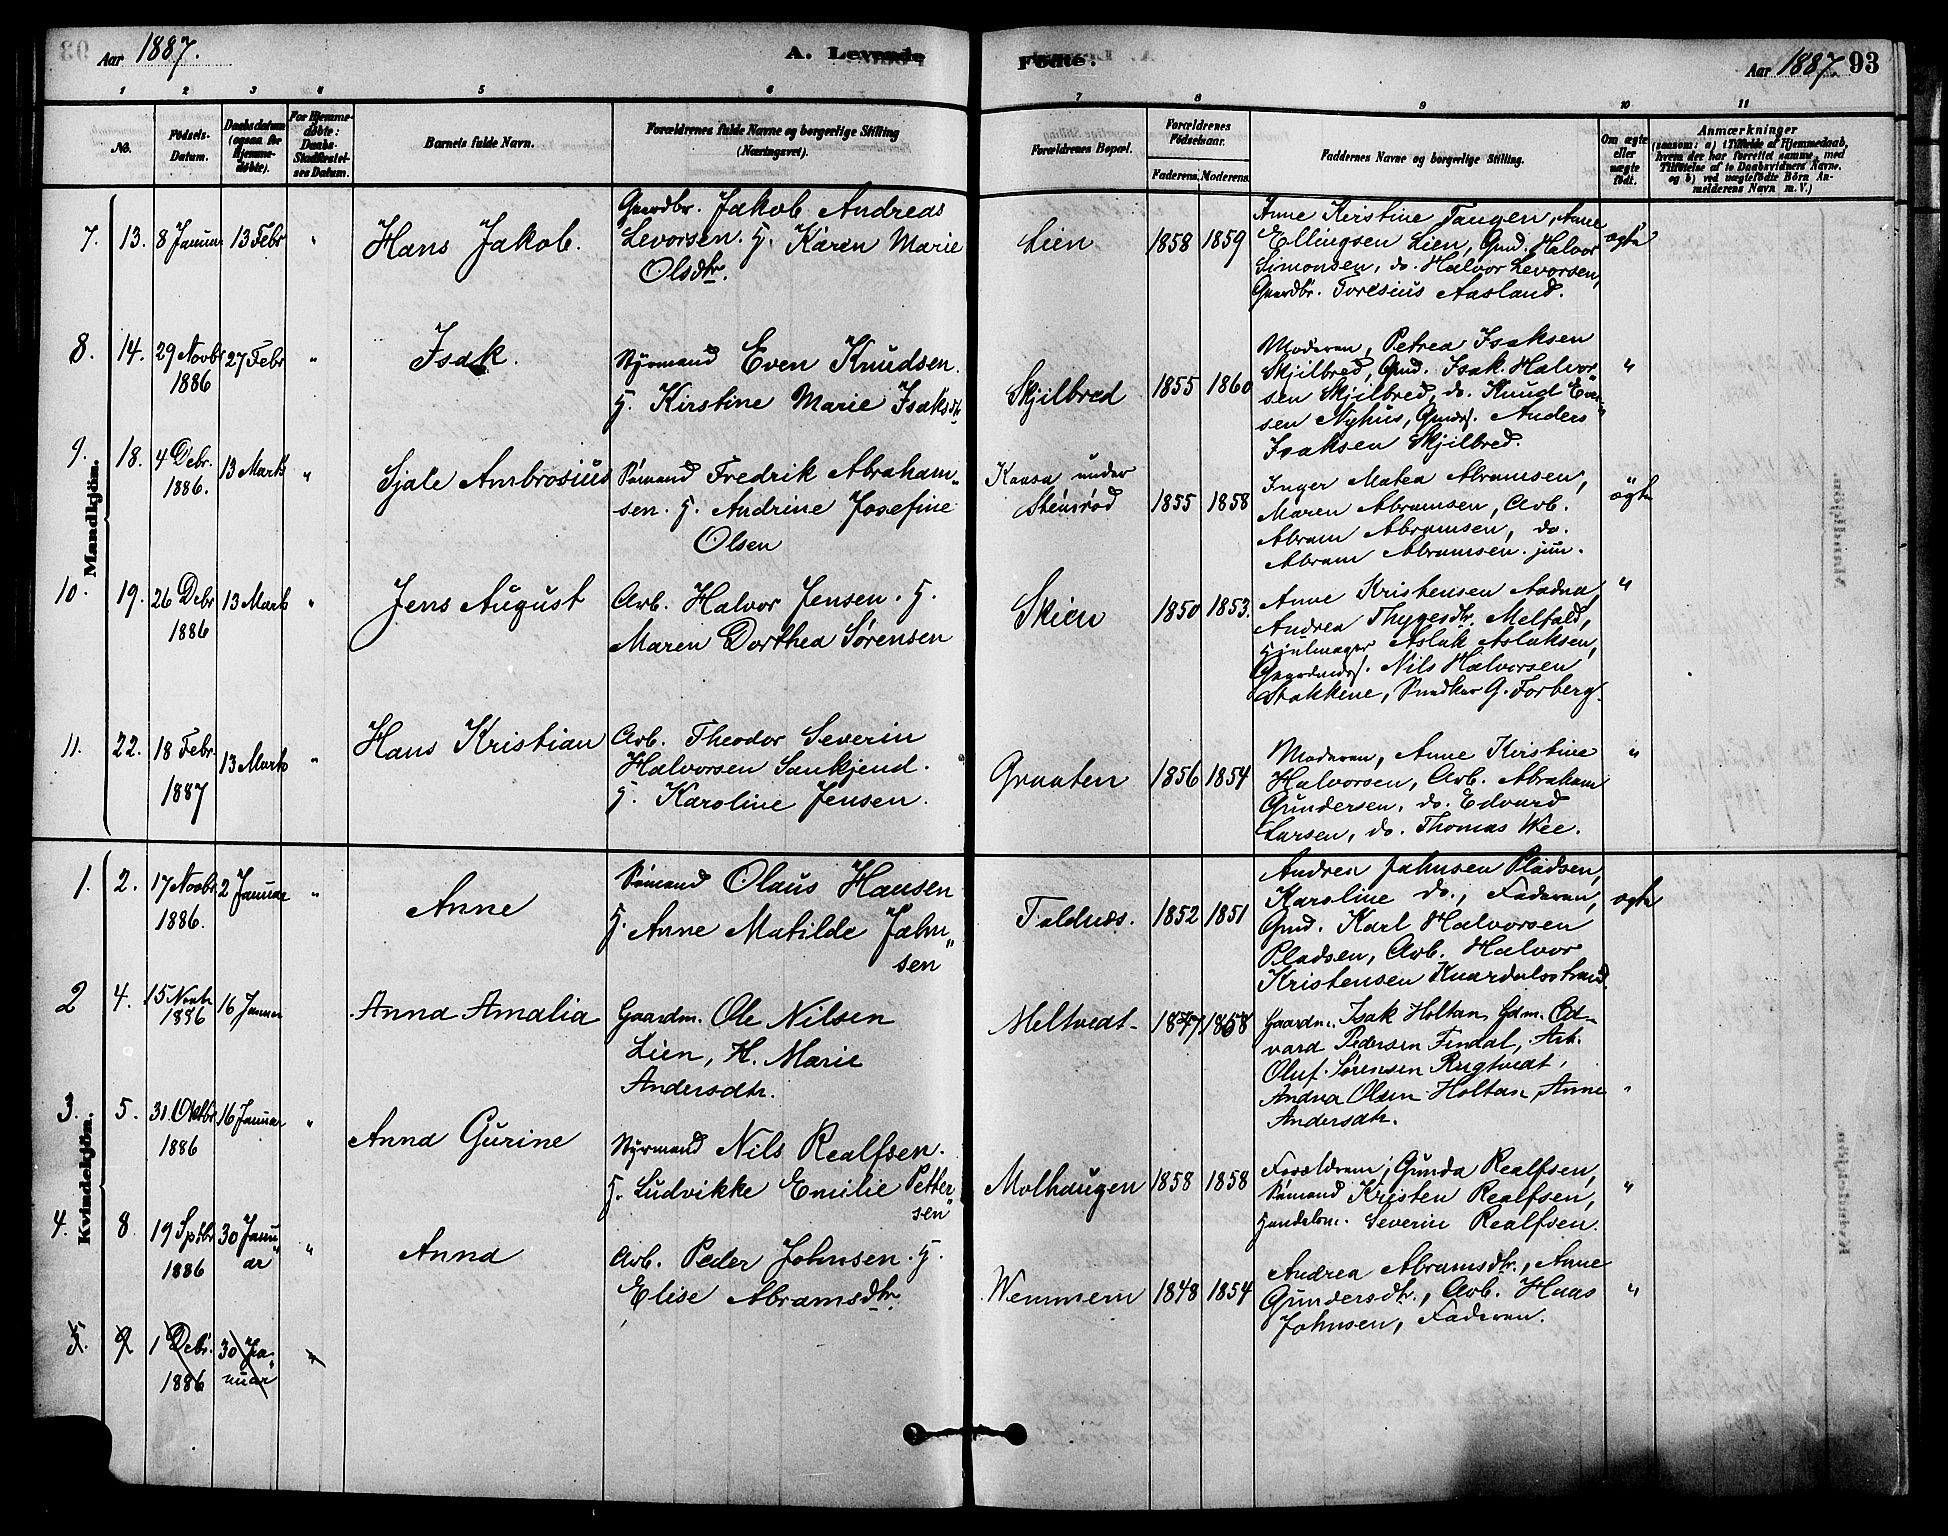 Aar 1887.
A. Levende
Fødte.
Aar 1887.
93
1 2 3 4 5 6 7 8 9 10 11
No.
Fødsels-
Datum.
Daabsdatum
(ogsaa for
Hjemme-
døbte).
For Hjemme-
døbte:
Daabs-
Stadfæstel-
ses Datum.
Barnets fulde Navn.
Forældrenes fulde Navne og borgerlige Stilling
(Næringsvei).
Forældrenes Bopæl.
Forældrenes
Fødselsaar.
Faderens. Moderens.
Faddernes Navne og borgerlige Stilling.
Om ægte
eller
uægte
født.
Anmærkninger
(saasom: a) i Tilfælde af Hjemmedaab,
hvem der har forrettet samme, med
Tilføielse af to Daabsvidners Navne,
og b) ved uægtefødte Børn An-
melderens Navn m. V.)
Mandkjøn.
7. 13. 8 Januar 13 Febr "
Hans Jakob.
Gaardbr. Jakob Andreas
Levorsen. H. Karen Marie
Olsdtr.
Lien 1858 1859
Anne Kirstine Tangen, Anne
Ellingsen Lien, Gmd. Halvor
Simonsen, do. Halvor Levorsen,
Gaardbr. Toresius Aasland.
ægte
8. 14. 29 Novbr 27 Febr "
1886
Isak.
Styrmand Even Knudsen.
H. Kirstine Marie Isaksdtr
Skjilbred 1855 1860
Moderen, Petrea Isaksen
Skjilbred, Gmd. Isak Halvor
sen Skjilbred, do. Knudt Even
sen Nyhus, Gaards. Anders
Isaksen Skjilbred.
"
9. 18. 4 Debr. 13 Marts "
1886.
Sjale Ambrosius
Sømand Fredrik Abraham"
sen. H. Andrine Josefine
Olsen
Kaasa under
Stensrød 1855 1858
Inger Matea Abramsen,
Maren Abramsen, Arb.
Abram Abramsen, do.
Abram Abramsen. jun.
ægte
10. 19. 26 Debr 13 Marts "
1886
Jens August
Arb. Halvor Jensen. H.
Maren Dorthea Sørensen
Skien 1850 1853.
Anne Kristensen Aadna,
Andrea Thygesdtr. Melfald,
Hjulmager Aslak Aslaksen,
Gaardmds. Nils Halvorsen
Stakkene, Snedker G. Forberg.
"
11. 22. 18 Febr 13 Marts "
1887
Hans Kristian
Arb. Theodor Severin
Halvorsen Sankjend.
H. Karoline Jensen.
Graaten 1856 1854
Moderen, Anne Kirstine
Halvorsen, Arb. Abraham
Gundersen, do. Edvard
Larsen, do. Thomas Wee.
"
Kvindekjøn.
1. 2. 17 Novbr 2 Januar "
1886.
Anne
Sømand Olaus Hansen
H. Anne Matilde Jahn"
sen
Faldnæs. 1852 1851
Andrea Jahnsen Pladsen,
Karoline do., Faderen,
Gmd. Karl Halvorsen
Pladsen, Arb. Halvor
Kristensen Knardalsstrand.
ægte
2 4. 15 Novbr 16 Januar
1886
Anna Amalia
Gaardm. Ole Nilsen
Lien, H. Marie
Andersdtr.
Meltvedt 1847 1858
Gaardm. Isak Holtan, Gdm. Ed-
vard Pedersen Findal, Arb.
Oluf Sørensen Rugtvedt,
Andrea Olsen Holtan, Anne
Andersdtr.
"
3. 5. 31 Oktbr 16 Januar "
1886
Anna Gurine
Styrmand Nils Realfsen.
H. Ludvikke Emilie Petter"
sen
Molhaugen 1858 1858
Forældrene, Gunda Realfsen,
Sømand Kristen Realfsen,
Handelsm. Severin Realfsen.
"
4. 8. 19 Sptbr 30 Janu"
1886 ar "
Anna
Arb. Peder Johnsen. H.
Elise Abramsdtr.
Wemmem 1848 1854
Andrea Abramsdtr., Anne
Gundersdtr., Arb. Hans
Johnsen, Faderen.
"
5. 9 1 Debr. 30 Ja"
1886 nuar "